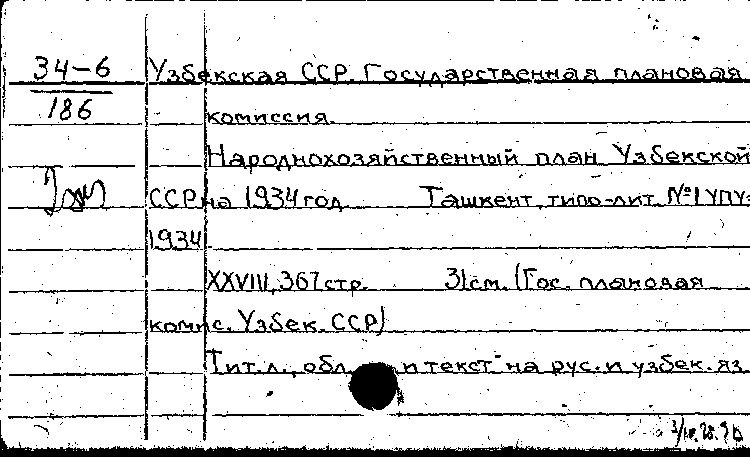 34-6 Узбекская ССР. Государственная плановая
186 комиссия.
Народнохозяйственный план Узбекской
ССР на 1934 год Ташкент, типо-лит. №1 УПУ,
1934
XXVIII, 367 стр. 31 см. (Гос. плановая
комис. Узбек. ССР)
Тит. л., обл. и текст на рус. и узбек. яз